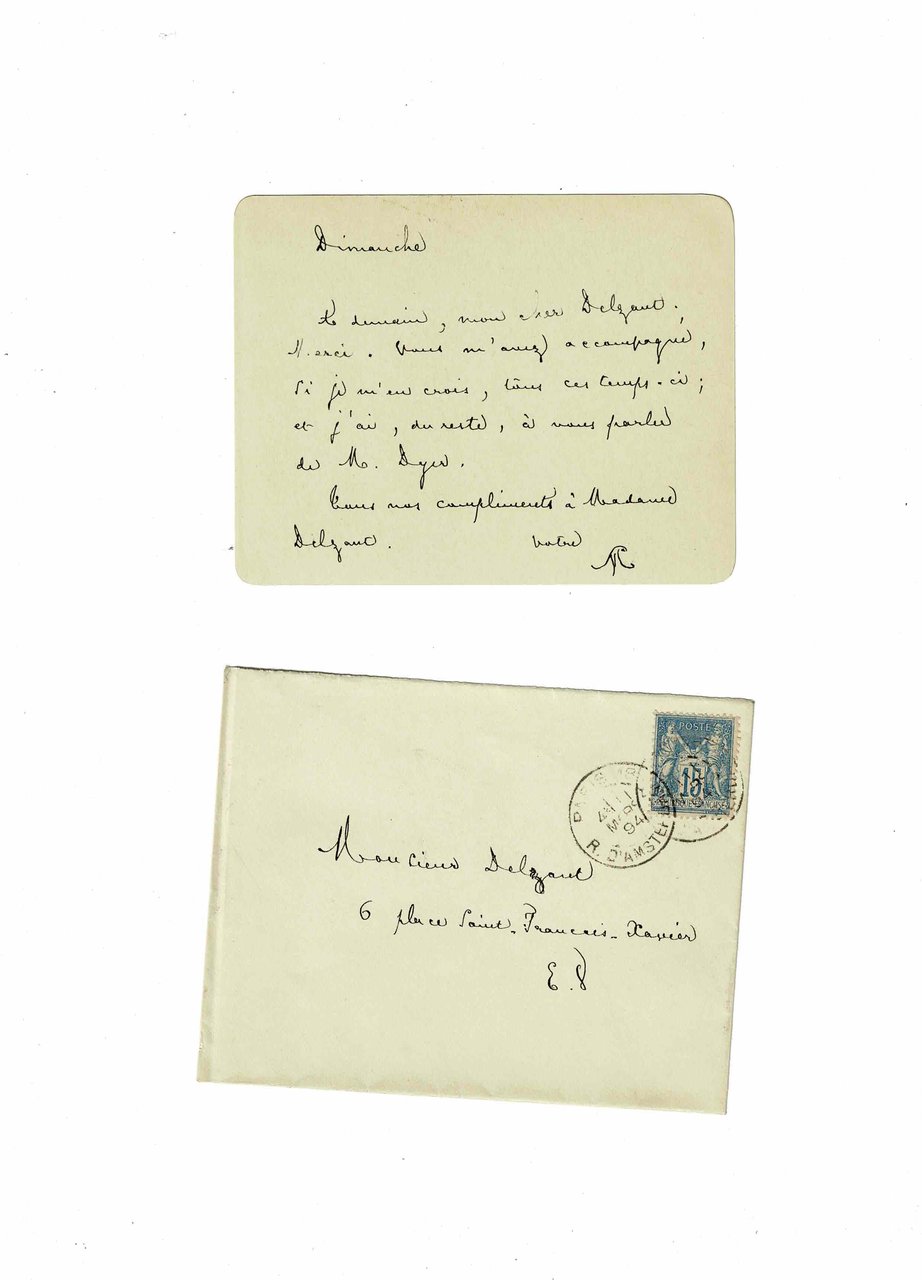 Dimanche
demain, mon cher Delzant.
Merci. Vous m'avez accompagné,
si je m'en crois, tous ces temps-ci;
et j'ai, du reste, à vous parler
de M. Dyer.
Tous nos compliments à Madame
Delzant. Votre
SM
POSTE
15
PARIS
MARS
94
R. D'AMSTERDAM
Monsieur Delzant
6 place Saint-François-Xavier
E.V